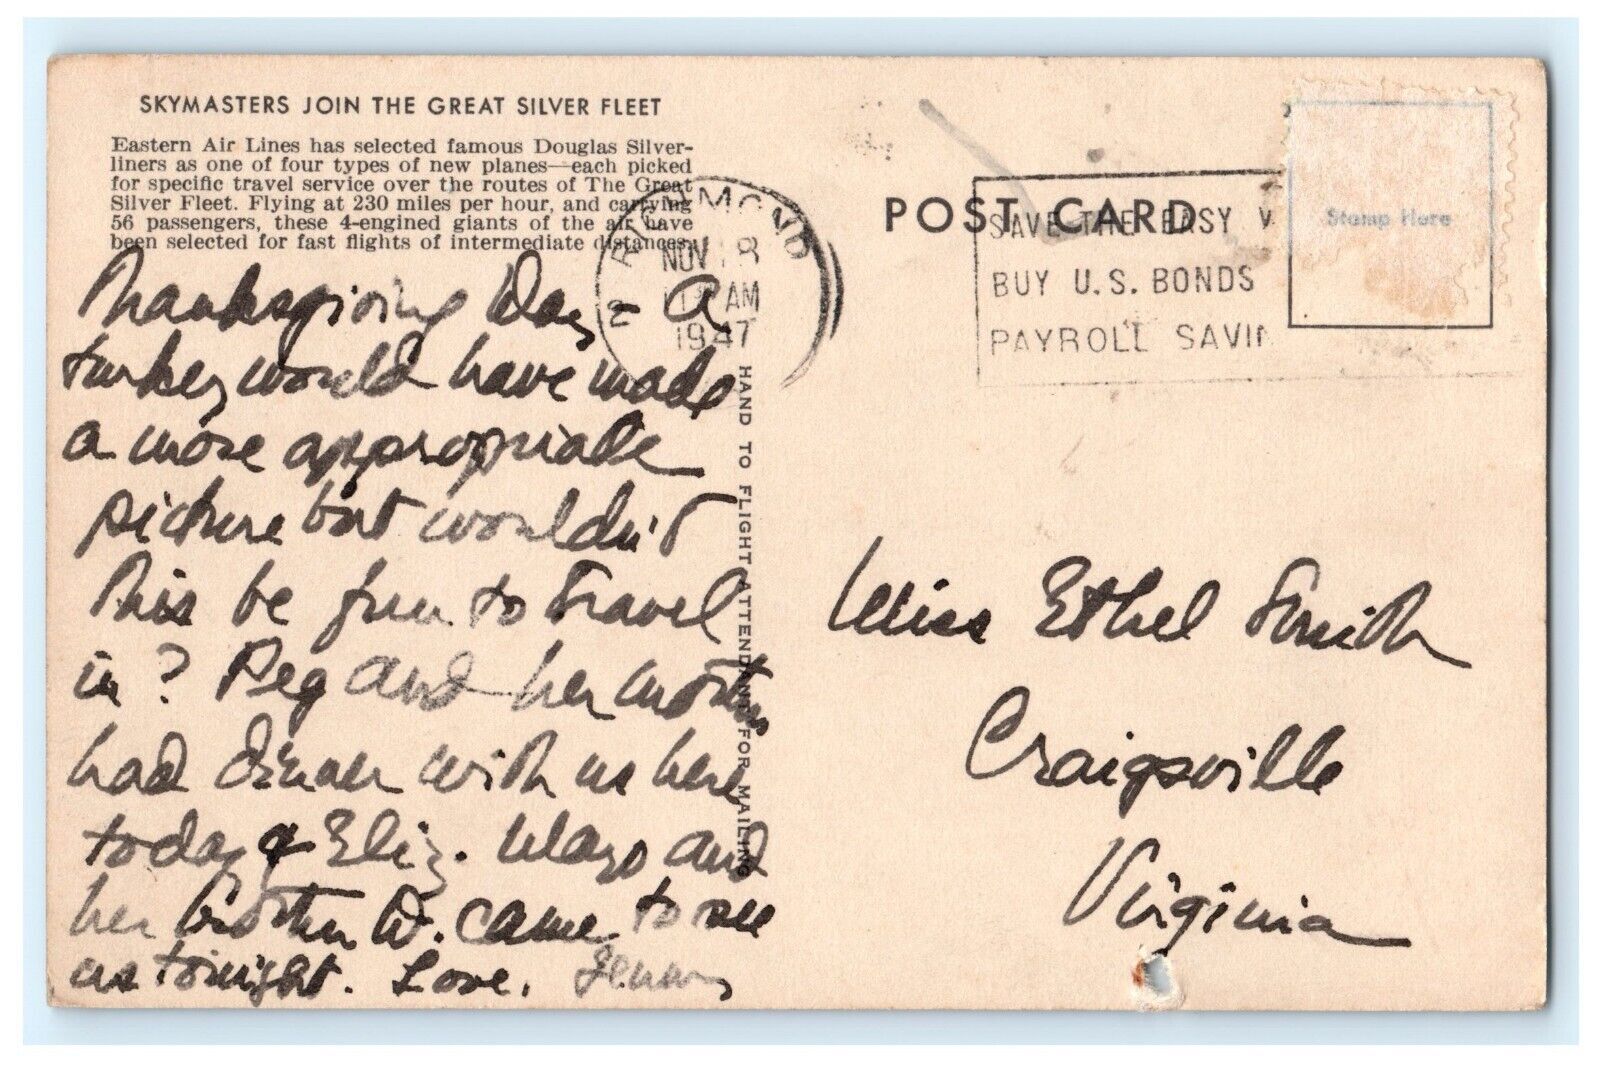 SKYMASTERS JOIN THE GREAT SILVER FLEET
Eastern Air Lines has selected famous Douglas Silver-
liners as one of four types of new planes—each picked
for specific travel service over the routes of The Great
Silver Fleet. Flying at 230 miles per hour, and carrying
56 passengers, these 4-engined giants of the air have
been selected for fast flights of intermediate distances.
Thanksgiving Day - A
turkey would have made
a more appropriate
picture but wouldn't
this be fun to travel
in? Peg and her mother
had dinner with us here
today & Eliz. Mayo and
her brother W. came to see
us tonight. Love,
HAND TO FLIGHT ATTENDANT FOR MAILING
RICHMOND
NOV 8
AM
1947
POST CARD
SAVE THE EASY
BUY U.S. BONDS
PAYROLL SAVIN
Stamp Here
Miss Ethel Smith
Craigsville
Virginia